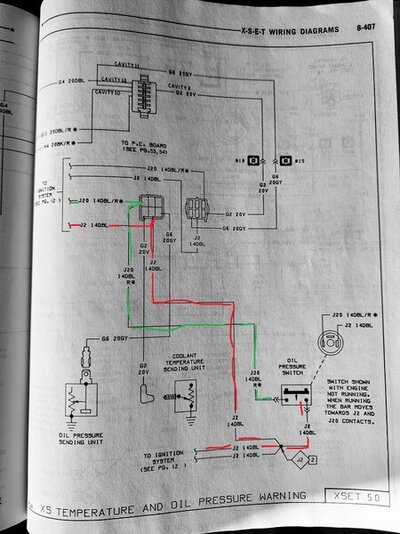 X-S-E-T WIRING DIAGRAMS 8-407
CAVITY11
CAVITY12
CAVITY10
G4 20DBL
G4
G6 20GY
CAVITY 2
G2 20V
TO P.C. BOARD
(SEE PG.53,54)
TO
IGNITION
SYSTEM
J20 14DBL/R*
J2 14DBL
J20
14DBL
R*
G2
20V
J2
14DBL
G6
20GY
J2
14DBL
G2 20V
G6 20GY
G2
20V
G6
20GY
J20 14DBL/R*
J2 14DBL
G6 20GY
OIL PRESSURE
SENDING UNIT
G2
20V
COOLANT
TEMPERATURE
SENDING UNIT
J20
14DBL
R*
OIL
PRESSURE
SWITCH
SWITCH SHOWN
WITH ENGINE
NOT RUNNING.
WHEN RUNNING
THE BAR MOVES
TOWARDS J2 AND
J20 CONTACTS.
J2
14DBL
J2
14DBL
TO IGNITION
SYSTEM
(SEE PG. 12 )
J2 14DBL
J2 14DBL
J2
XS TEMPERATURE AND OIL PRESSURE WARNING
XSET 50